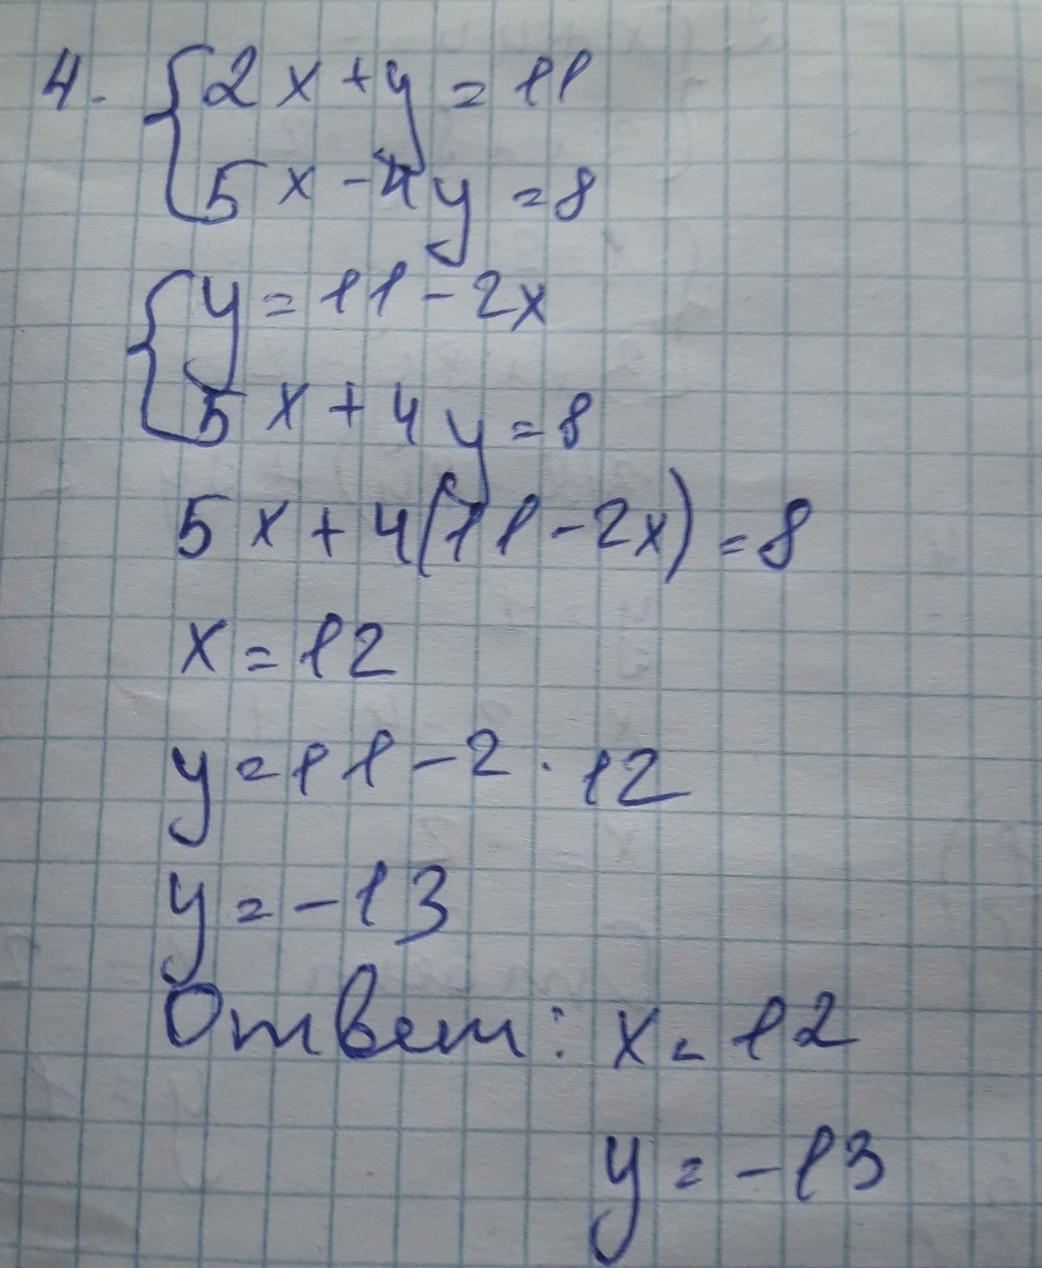 4. { 2x+y=11
5x-4y=8
{ y=11-2x
5x+4y=8
5x+4(11-2x)=8
x=12
y=11-2·12
y=-13
Ответ: x=12
y=-13